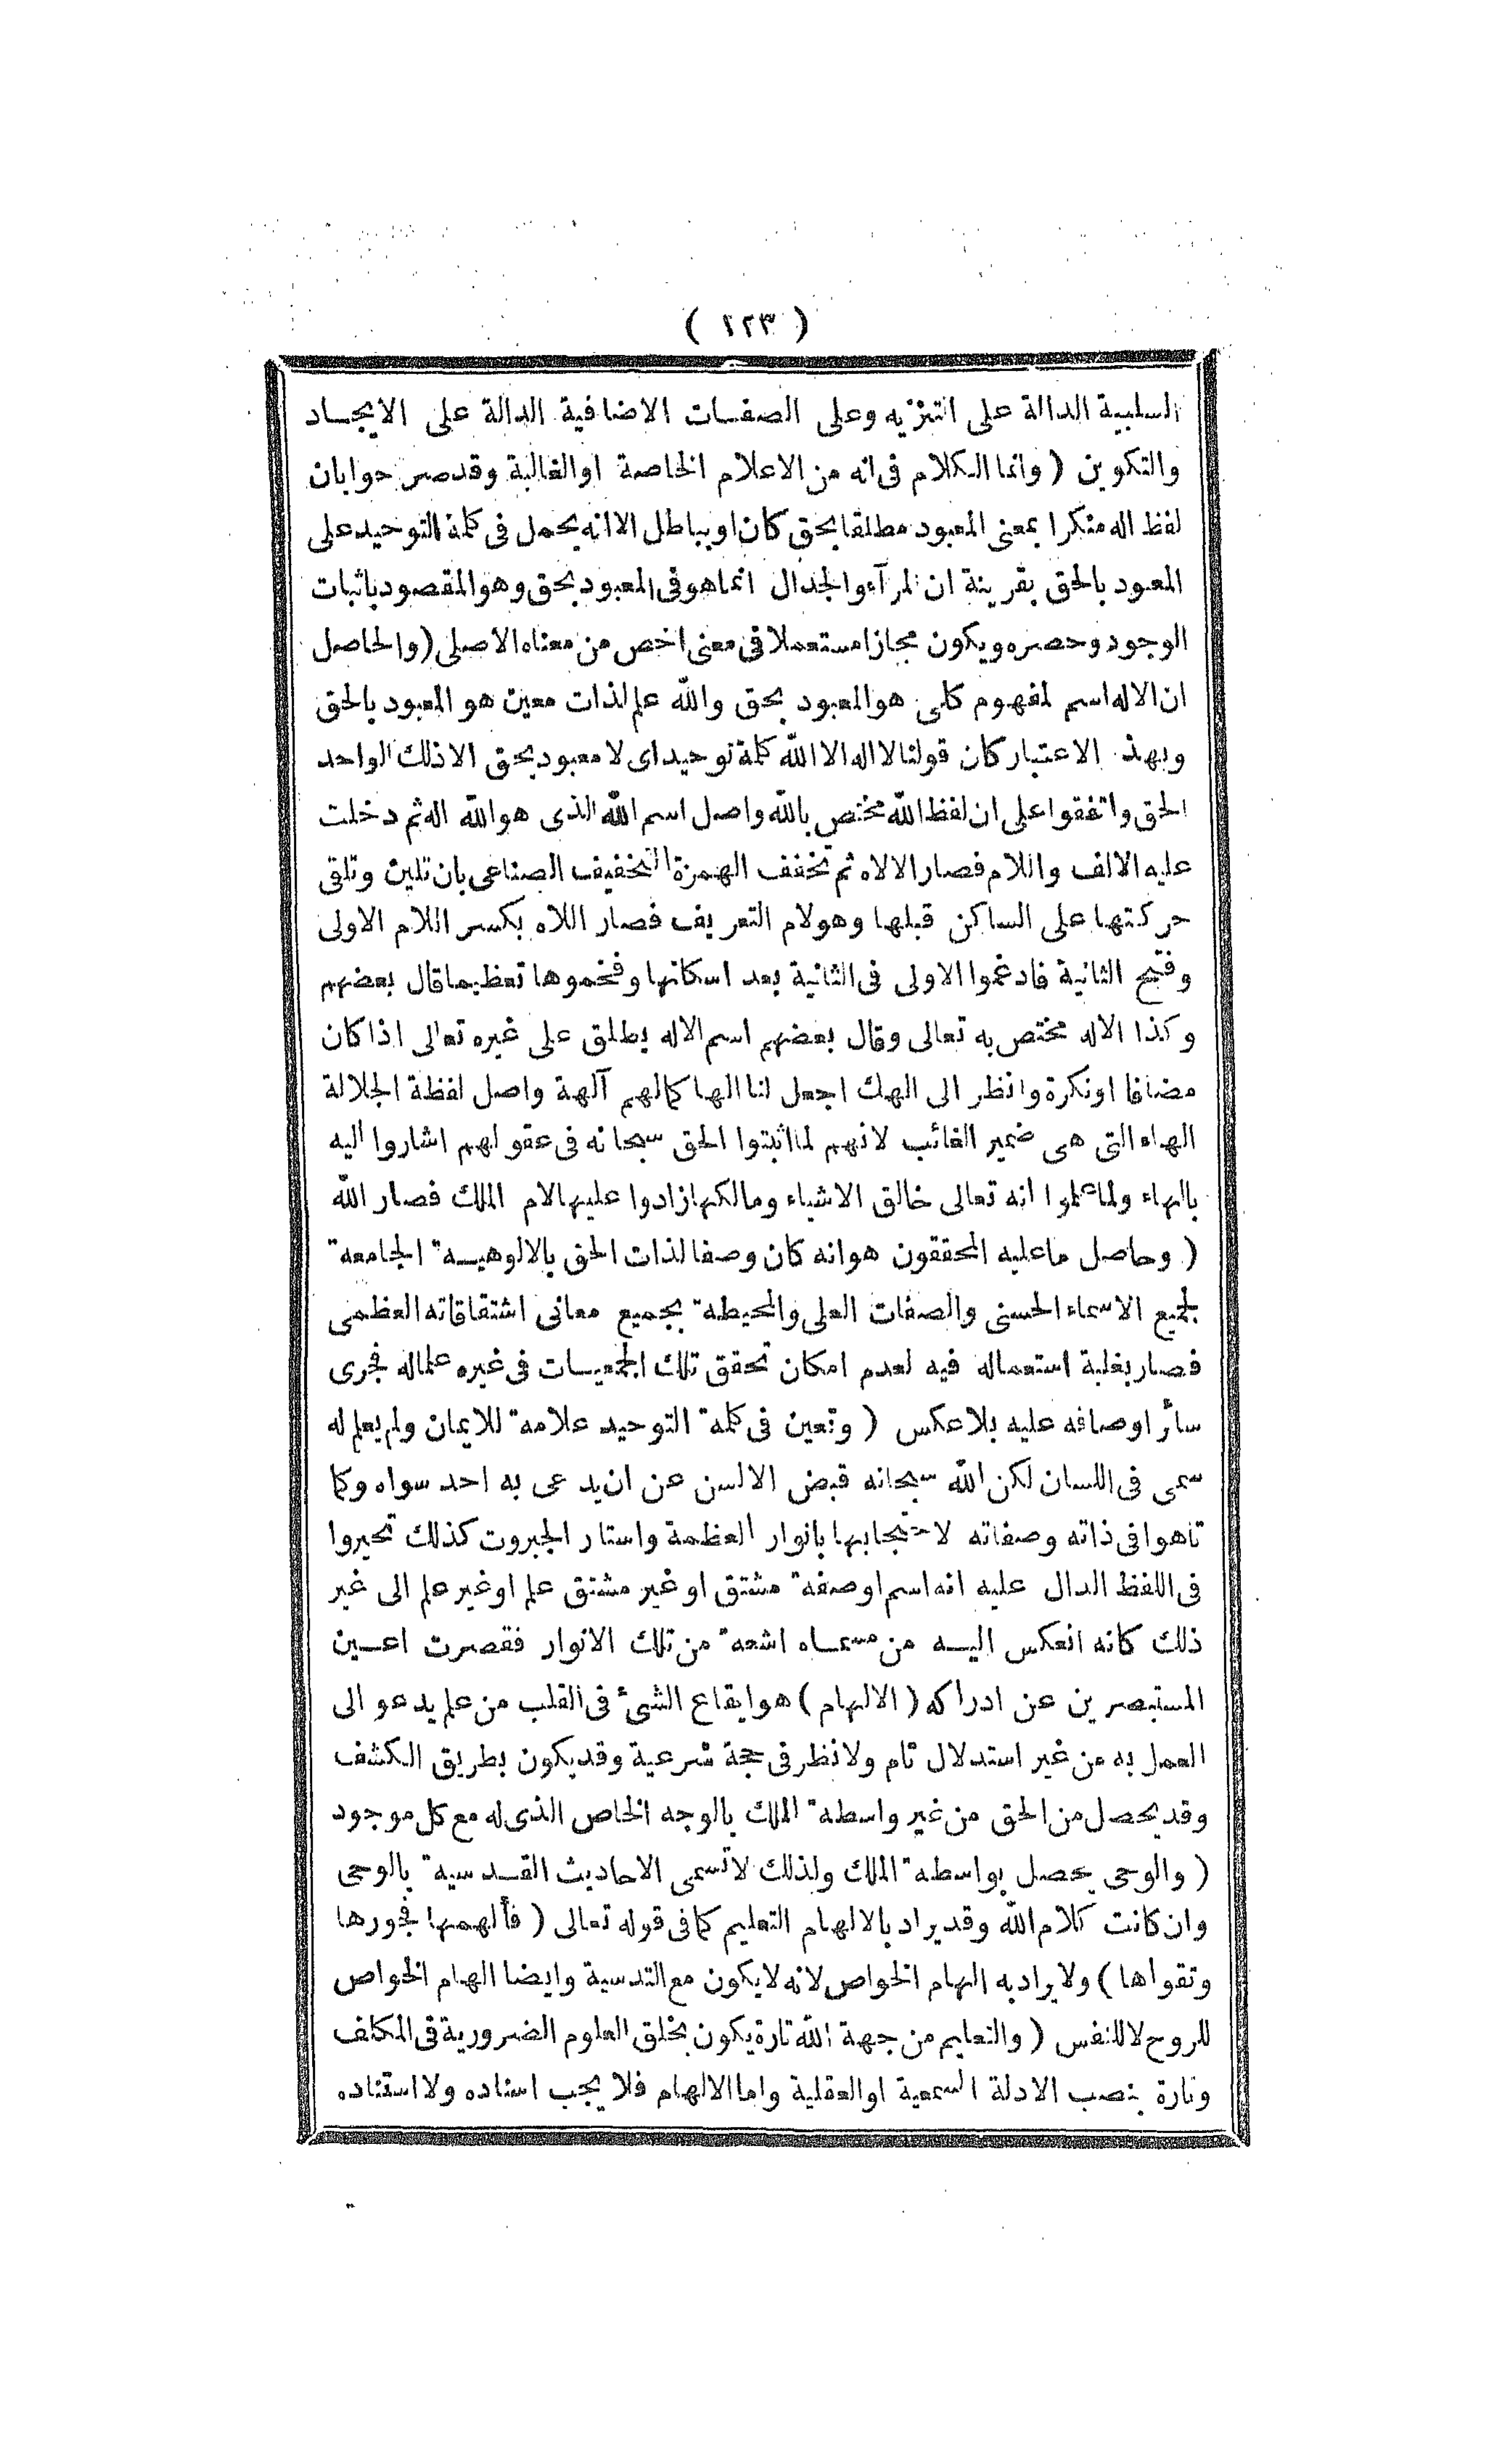 ( ١٢٣ )
السلبية الدالة على التنزيه وعلى الصفات الاضافية الدالة على الايجاد
والتكوين ( وانما الكلام فى انه من الاعلام الخاصة او الغالبة وقد صرحوا بان
لفظ اله منكرا بمعنى المعبود مطلقا بحق كان او بباطل الا انه يحمل فى كلمة التوحيد على
المعبود بالحق بقرينة ان المرآء والجدال انما هو فى المعبود بحق وهو المقصود باثبات
الوجود وحصره ويكون مجازا مستعملا فى معنى اخص من معناه الاصلى ( والحاصل
ان الاله اسم لمفهوم كلى هو المعبود بحق والله علم لذات معين هو المعبود بالحق
وبهذ الاعتبار كان قولنا لا اله الا الله كلمة توحيد اى لا معبود بحق الا ذلك الواحد
الحق واتفقوا على ان لفظ الله مختص بالله واصل اسم الله الذى هو الله اله ثم دخلت
عليه الالف واللام فصار الالاه ثم تخفف الهمزة التخفيف الصناعى بان تلين وتلقى
حركتها على الساكن قبلها وهو لام التعريف فصار اللاه بكسر اللام الاولى
وفتح الثانية فادغموا الاولى فى الثانية بعد اسكانها وفخموها تعظيما قال بعضهم
وكذا الاله مختص به تعالى وقال بعضهم اسم الاله يطلق على غيره تعالى اذا كان
مضافا او نكرة وانظر الى الهك اجعل لنا الها كما لهم آلهة واصل لفظة الجلالة
الهاء التى هى ضمير الغائب لانهم لما اثبتوا الحق سبحانه فى عقولهم اشاروا اليه
بالهاء ولما علموا انه تعالى خالق الاشياء ومالكها زادوا عليها لام الملك فصار الله
( وحاصل ما عليه المحققون هو انه كان وصفا لذات الحق بالالوهية الجامعة
لجميع الاسماء الحسنى والصفات العلى والمحيطة بجميع معانى اشتقاقاته العظمى
فصار بغلبة استعماله فيه لعدم امكان تحقق تلك الجمعيات فى غيره علما له فجرى
سائر اوصافه عليه بلا عكس ( وتعين فى كلمة التوحيد علامة للايمان ولم يعلم له
سمى فى اللسان لكن الله سبحانه قبض الالسن عن ان يدعى به احد سواه وكما
تاهوا فى ذاته وصفاته لاحتجابها بانوار العظمة واستار الجبروت كذلك تحيروا
فى اللفظ الدال عليه انه اسم او صفة مشتق او غير مشتق علم او غير علم الى غير
ذلك كانه انعكس اليه من مسماه اشعة من تلك الانوار فقصرت اعين
المستبصرين عن ادراكه ( الالهام ) هو ايقاع الشئ فى القلب من علم يدعو الى
العمل به من غير استدلال تام ولا نظر فى حجة شرعية وقد يكون بطريق الكشف
وقد يحصل من الحق من غير واسطة الملك بالوجه الخاص الذى له مع كل موجود
( والوحى يحصل بواسطة الملك ولذلك لا تسمى الاحاديث القدسية بالوحى
وان كانت كلام الله وقد يراد بالالهام التعليم كما فى قوله تعالى ( فألهمها فجورها
وتقواها ) ولا يراد به الهام الخواص لانه لا يكون مع التدسية وايضا الهام الخواص
للروح لا للنفس ( والتعليم من جهة الله تارة يكون بخلق العلوم الضرورية فى المكلف
وتارة بنصب الادلة السمعية او العقلية واما الالهام فلا يجب اسناده ولا استناده